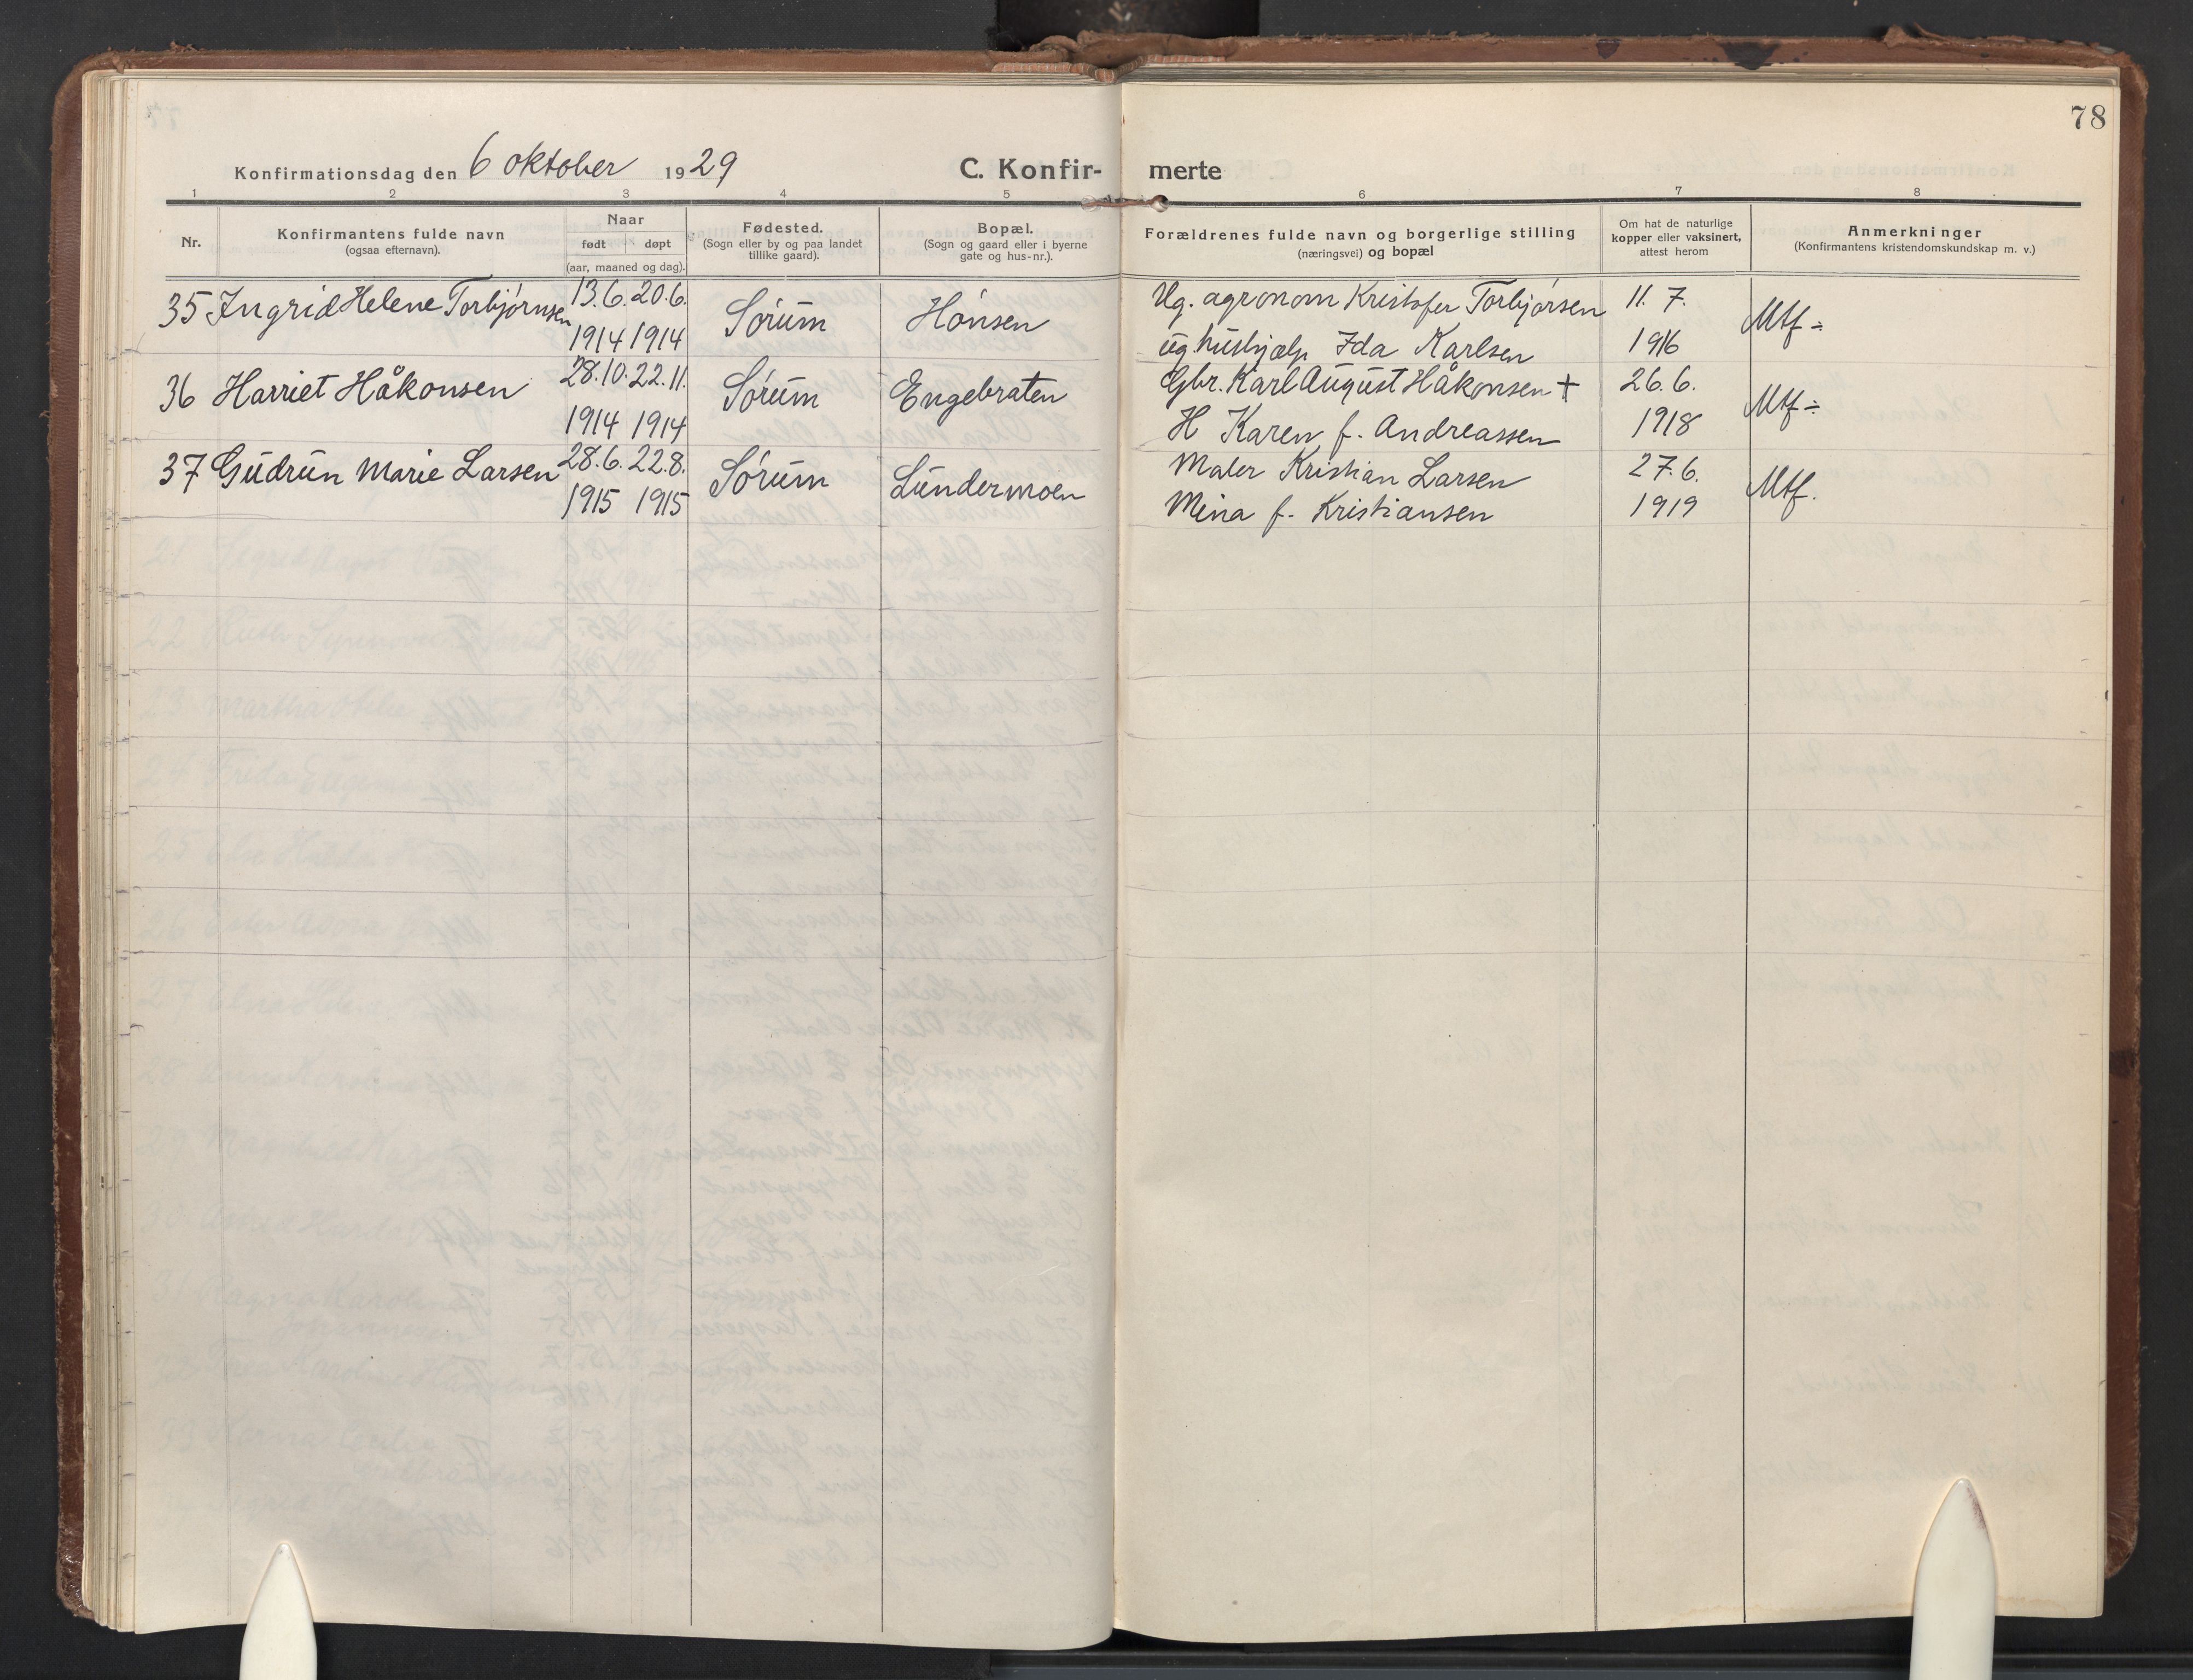 78
Konfirmationsdag den 6 oktober 1929 C. Konfir- merte
1 2 3 4 5 6 7 8
Nr.
Konfirmantens fulde navn
(ogsaa efternavn).
Naar
født døpt
(aar, maaned og dag).
Fødested.
(Sogn eller by og paa landet
tillike gaard).
Bopæl.
(Sogn og gaard eller i byerne
gate og hus-nr.).
Forældrenes fulde navn og borgerlige stilling
(næringsvei) og bopæl
Om hat de naturlige
kopper eller vaksinert,
attest herom
Anmerkninger
(Konfirmantens kristendomskundskap m. v.)
35 Ingrid Helene Torbjørnsen 13.6. 20.6. Sørum Hønsen Ug. agronom Kristofer Torbjørsen 11. 7. Mtf ÷
1914 1914 ug. hushjælp Ida Karlsen 1916
36 Harriet Håkonsen 28.10. 22.11. Sørum Engebraten Gbr. Karl August Håkonsen + 26.6. Mtf ÷
1914 1914 H Karen f. Andreassen 1918
37 Gudrun Marie Larsen 28.6. 22.8. Sørum Lundermoen Maler Kristian Larsen 27.6. Mtf.
1915 1915 Mina f. Kristiansen 1919